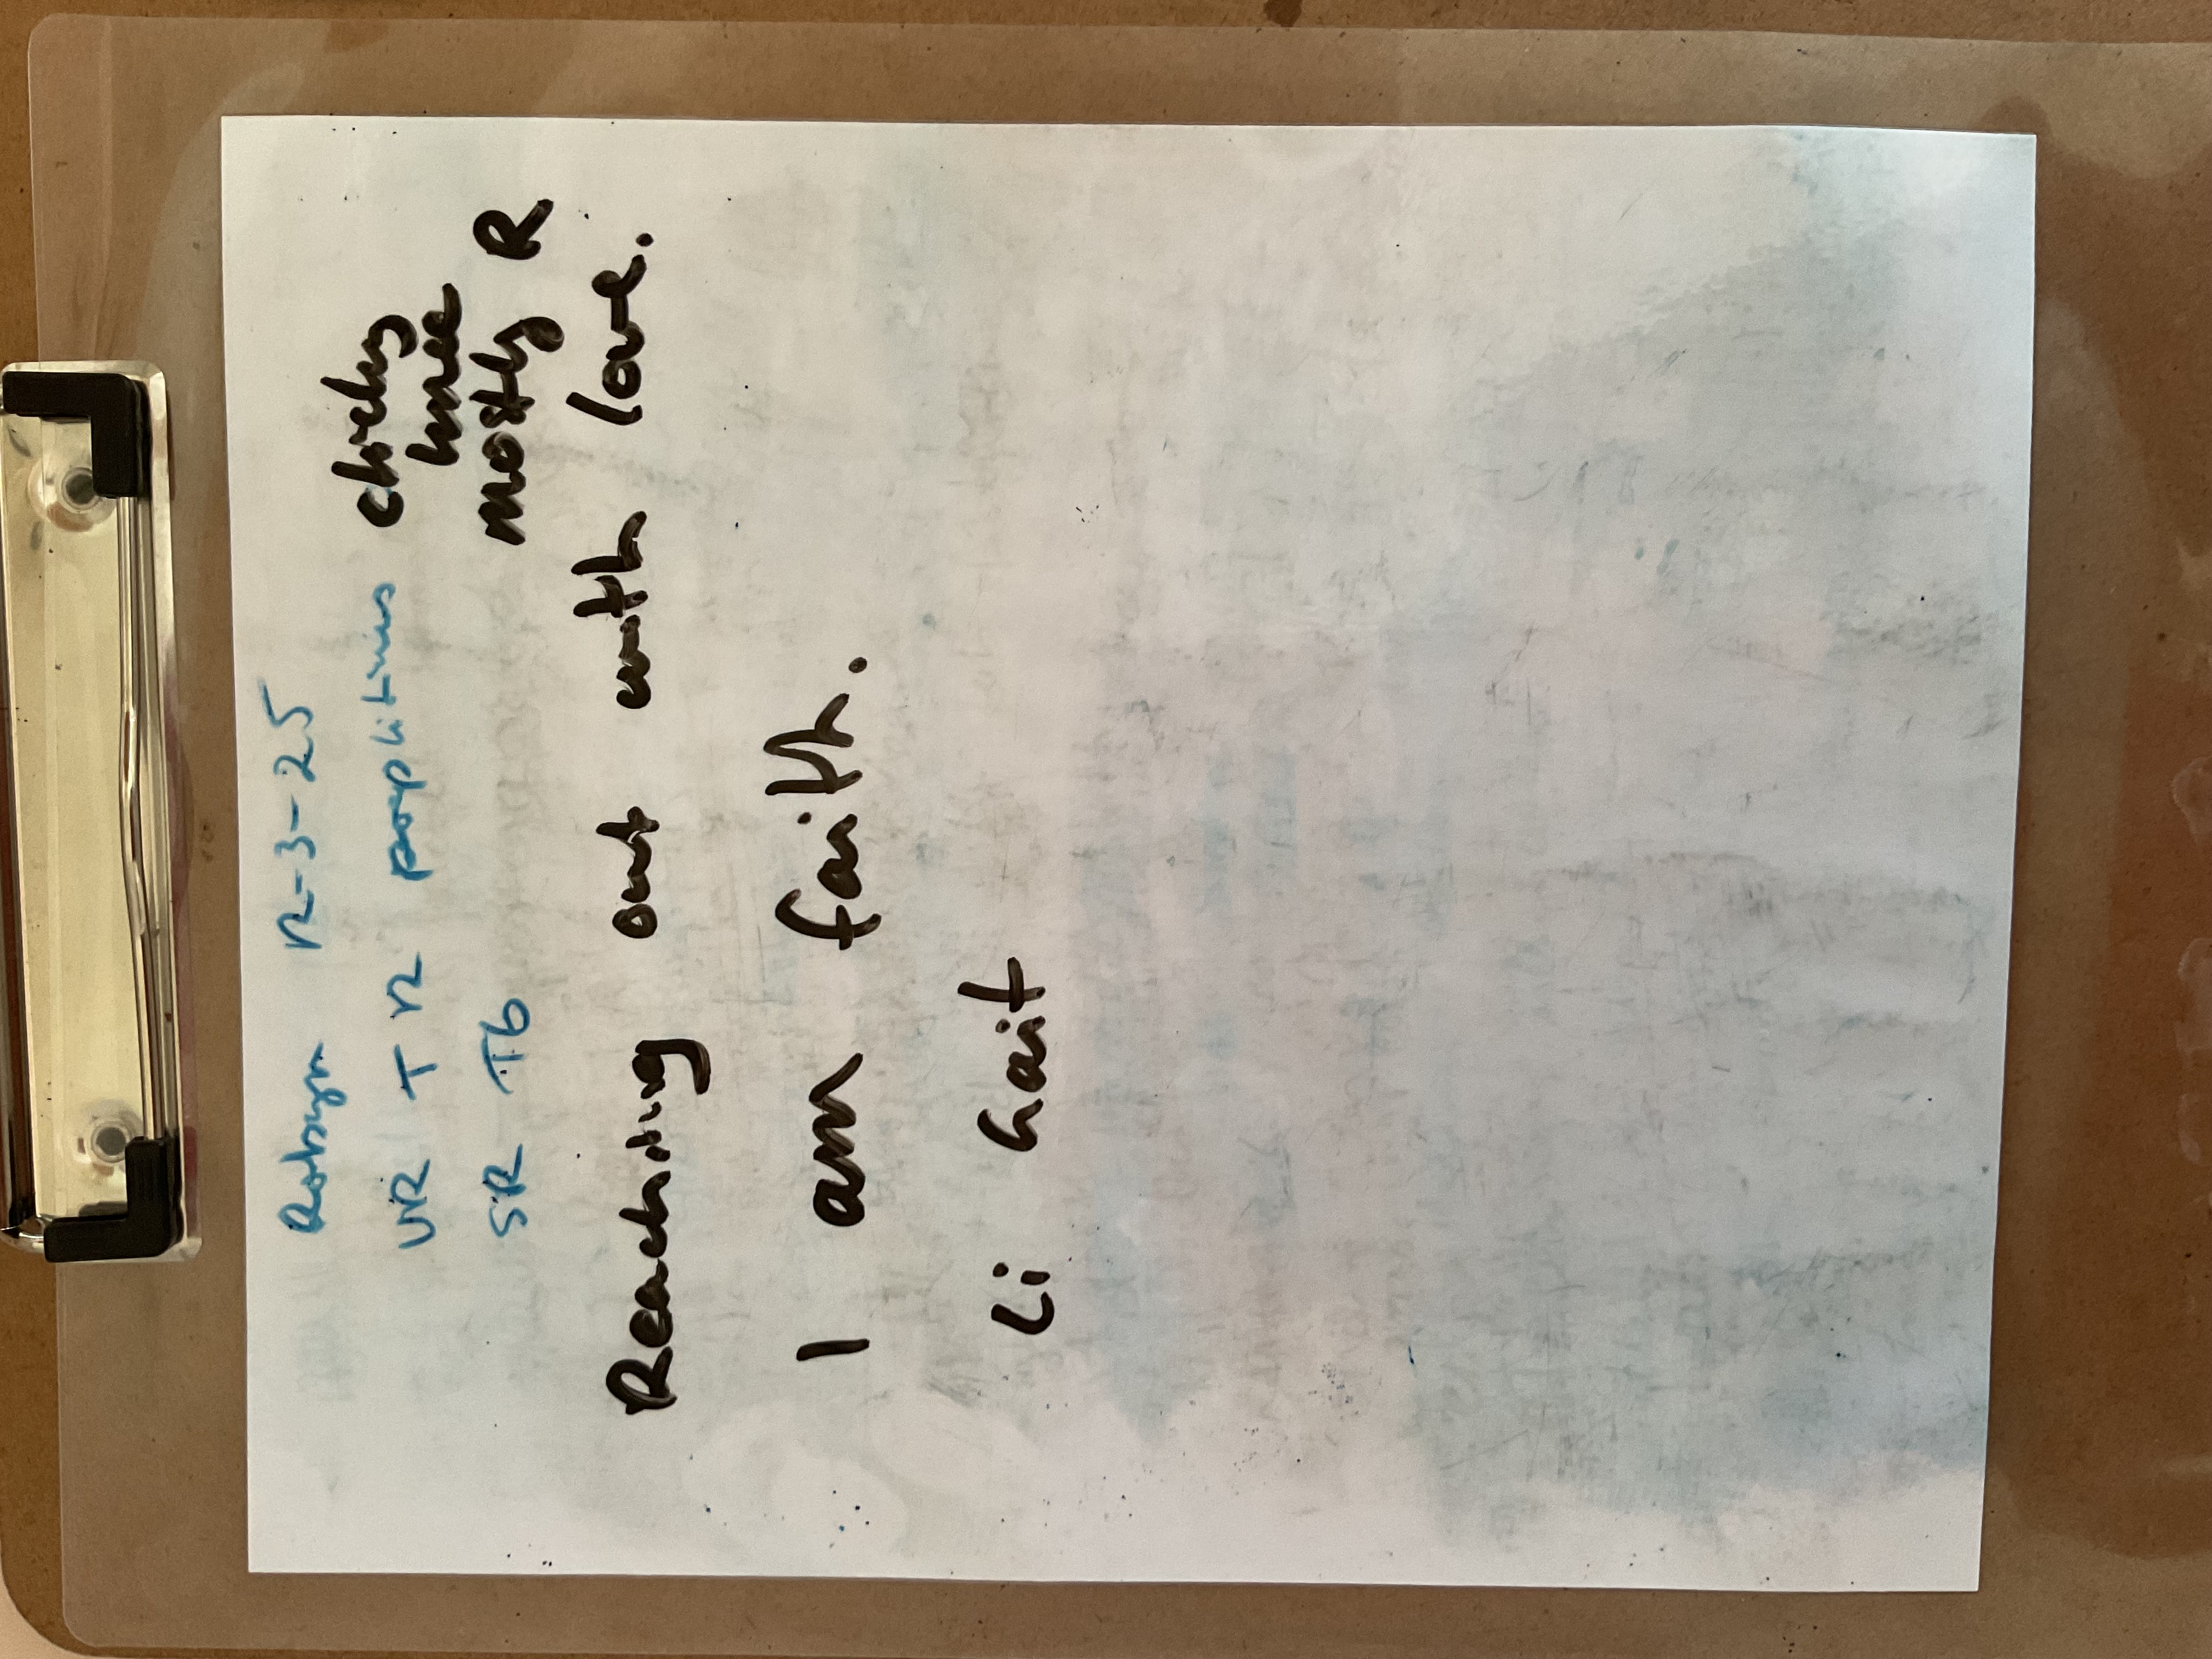 Robyn 12-3-25
UR T 12 popliteus clicky
knee
SR T6 mostly R
Reaching out with love.
I am faith.
Li hait